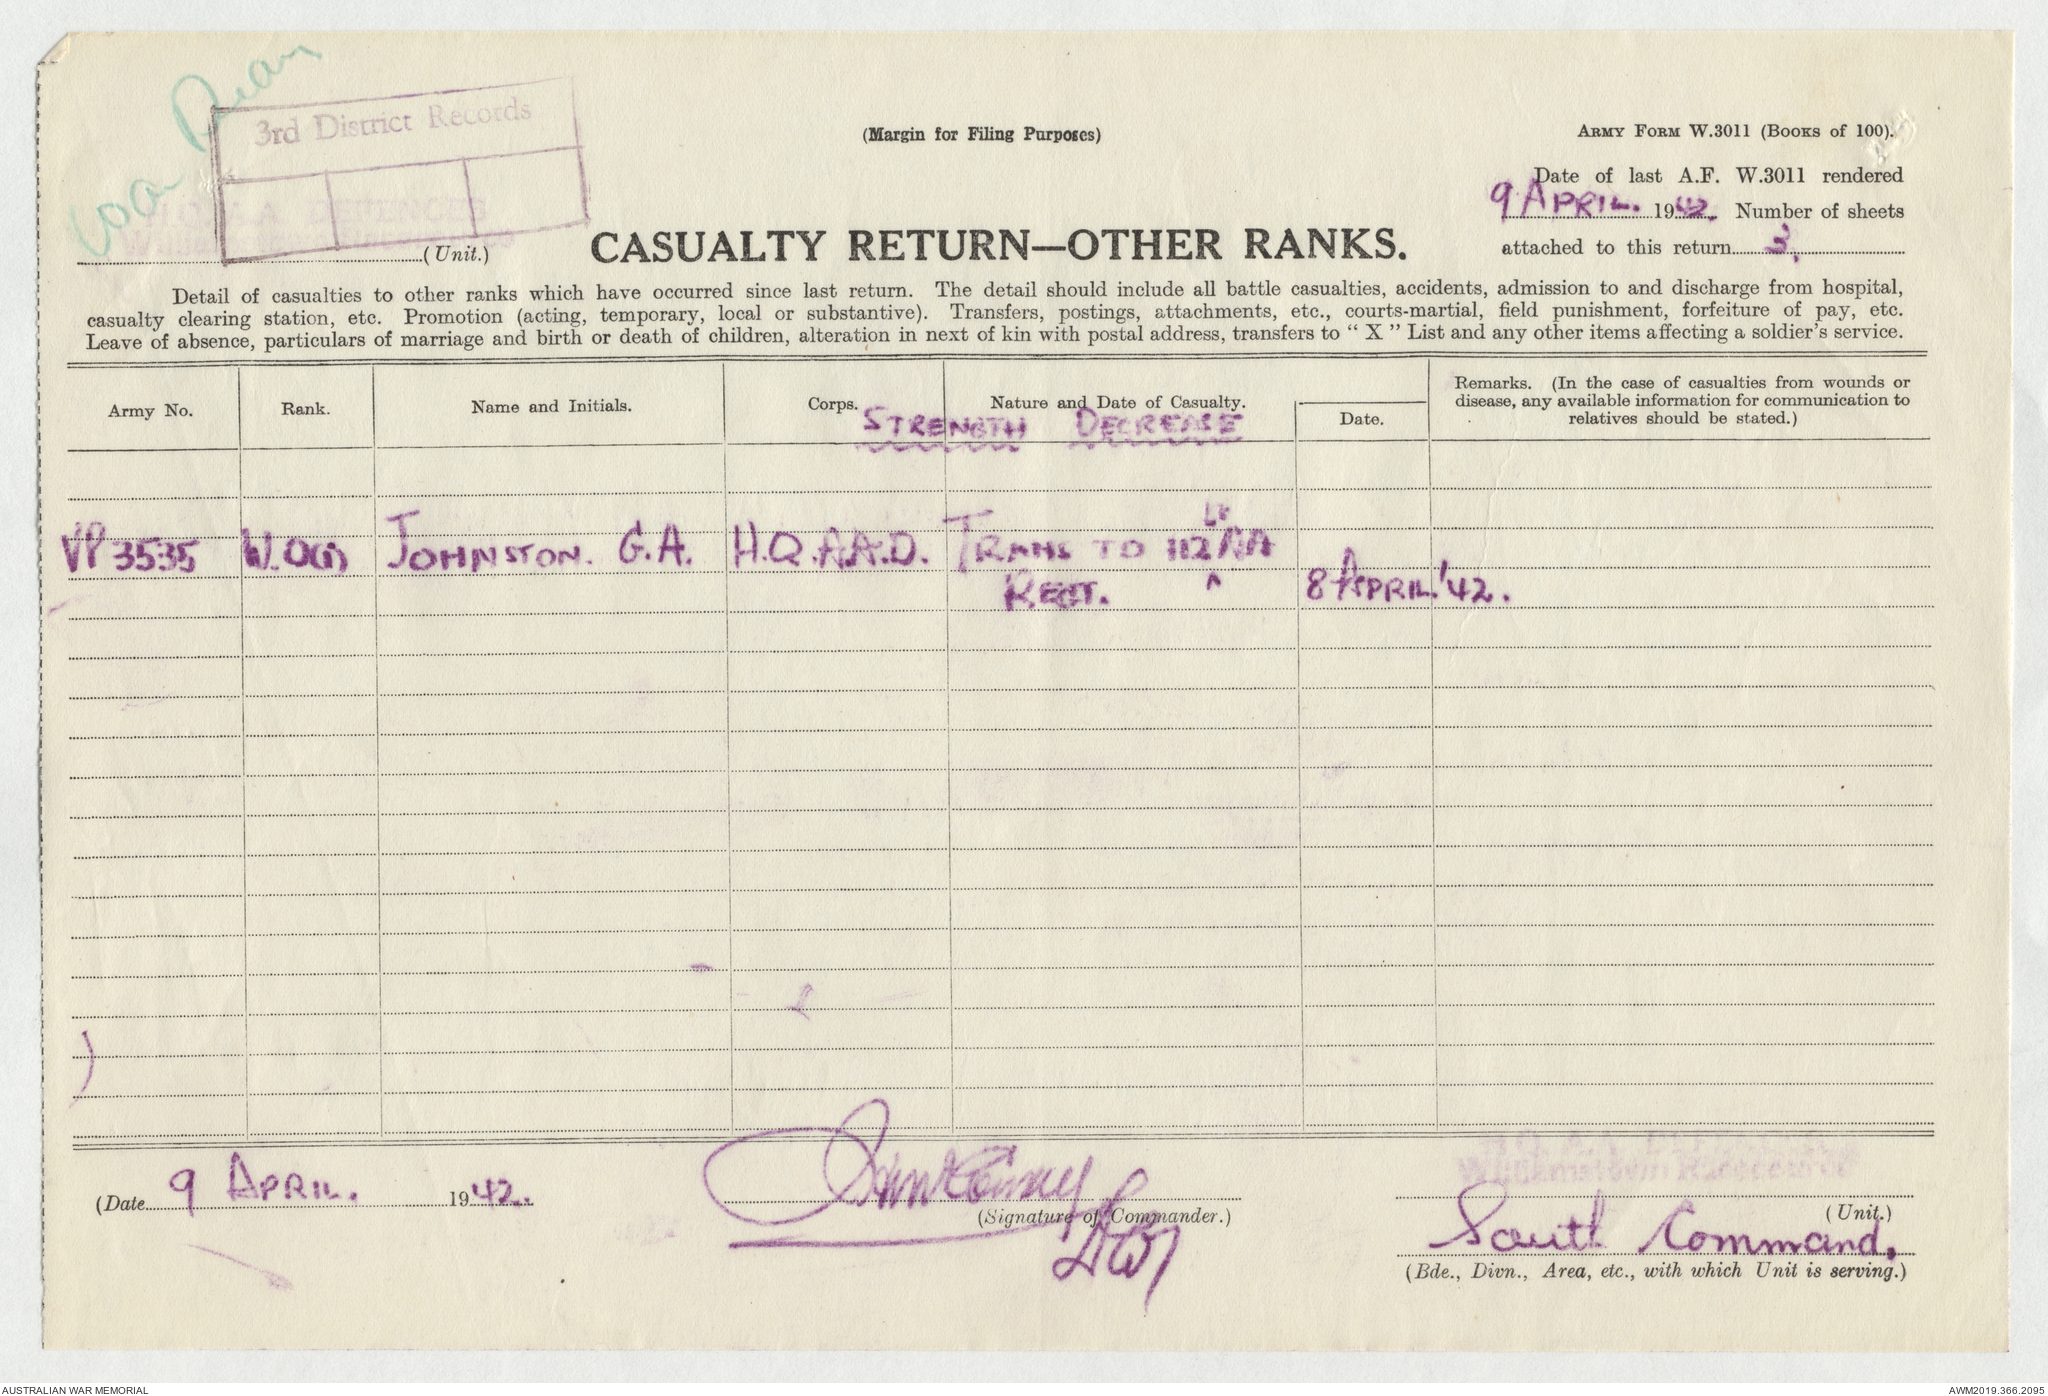 3rd District Records
(Margin for Filing Purposes)
ARMY FORM W.3011 (BOOKS OF 100).
Date of last A.F. W.3011 rendered
9 APRIL. 1942. Number of sheets
attached to this return 3.
H.Q. A.A. DEFENCES
(Unit.)
CASUALTY RETURN—OTHER RANKS.
Detail of casualties to other ranks which have occurred since last return. The detail should include all battle casualties, accidents, admission to and discharge from hospital,
casualty clearing station, etc. Promotion (acting, temporary, local or substantive). Transfers, postings, attachments, etc., courts-martial, field punishment, forfeiture of pay, etc.
Leave of absence, particulars of marriage and birth or death of children, alteration in next of kin with postal address, transfers to " X " List and any other items affecting a soldier's service.
Army No. Rank. Name and Initials. Corps. Nature and Date of Casualty. Date. Remarks. (In the case of casualties from wounds or
disease, any available information for communication to
relatives should be stated.)
STRENGTH DECREASE
VP3535 W.O(i) JOHNSTON. G.A. H.Q.A.A.D. TRANS TO 112 Lt AA
REGT. 8 APRIL.'42.
(Date 9 APRIL. 1942.
(Signature of Commander.)
H.Q. A.A. DEFENCES
Williamstown Racecourse
(Unit.)
South Command.
(Bde., Divn., Area, etc., with which Unit is serving.)
AUSTRALIAN WAR MEMORIAL
AWM2019.366.2095